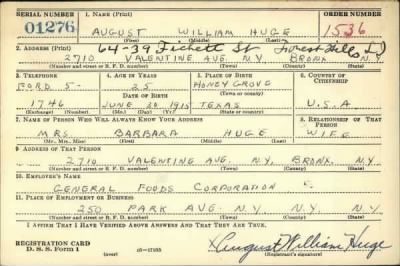 SERIAL NUMBER 1. NAME (Print) ORDER NUMBER
01276 AUGUST WILLIAM HUGE 1536
(First) (Middle) (Last)
64-39 Fichett St Forest Hills LI
2. ADDRESS (Print)
2710 VALENTINE AVE N.Y. BRONX N.Y.
(Number and street or R. F. D. number) (Town) (County) (State)
3. TELEPHONE 4. AGE IN YEARS 5. PLACE OF BIRTH 6. COUNTRY OF CITIZENSHIP
FORD. 5- 25 HONEY GROVE
DATE OF BIRTH (Town or county)
1746 JUNE 20 1915 TEXAS U.S.A.
(Exchange) (Number) (Mo.) (Day) (Yr.) (State or country)
7. NAME OF PERSON WHO WILL ALWAYS KNOW YOUR ADDRESS 8. RELATIONSHIP OF THAT PERSON
MRS. BARBARA HUGE WIFE
(Mr., Mrs., Miss) (First) (Middle) (Last)
9. ADDRESS OF THAT PERSON
2710 VALENTINE AVE. N.Y. BRONX. N.Y.
(Number and street or R. F. D. number) (Town) (County) (State)
10. EMPLOYER'S NAME
GENERAL FOODS CORPORATION
11. PLACE OF EMPLOYMENT OR BUSINESS
250 PARK AVE. N.Y. N.Y. N.Y.
(Number and street or R. F. D. number) (Town) (County) (State)
I AFFIRM THAT I HAVE VERIFIED ABOVE ANSWERS AND THAT THEY ARE TRUE.
REGISTRATION CARD
D. S. S. Form 1 (over) 16-17105 August William Huge
(Registrant's signature)